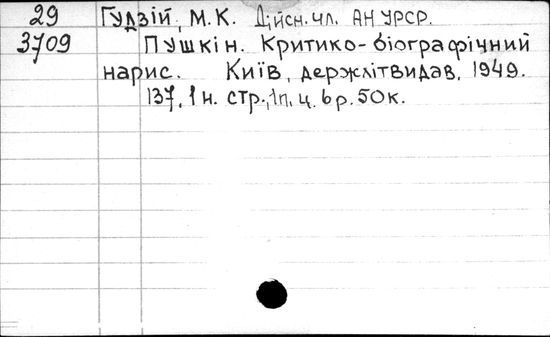 29 Гудзій, М.К. Дійсн. чл. АН УРСР.
3709 Пушкін. Критико-біографічний
нарис. Київ, держлітвидав, 1949.
137, 1 н. стр., 1 п. ц. 6 р. 50 к.